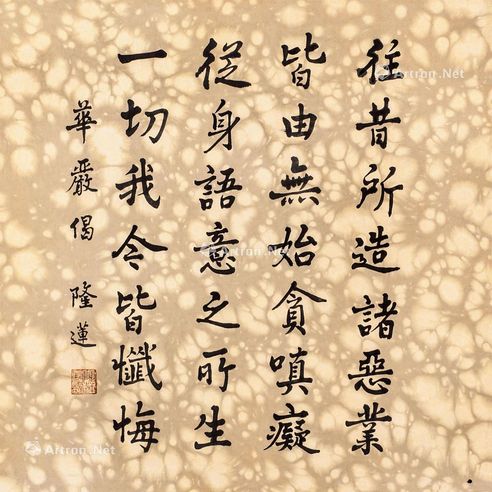 往昔所造諸惡業
皆由無始貪嗔癡
從身語意之所生
一切我今皆懺悔
華嚴偈 隆蓮
Artron.Net
Artron.Net
Artron.Net
Artron.Net